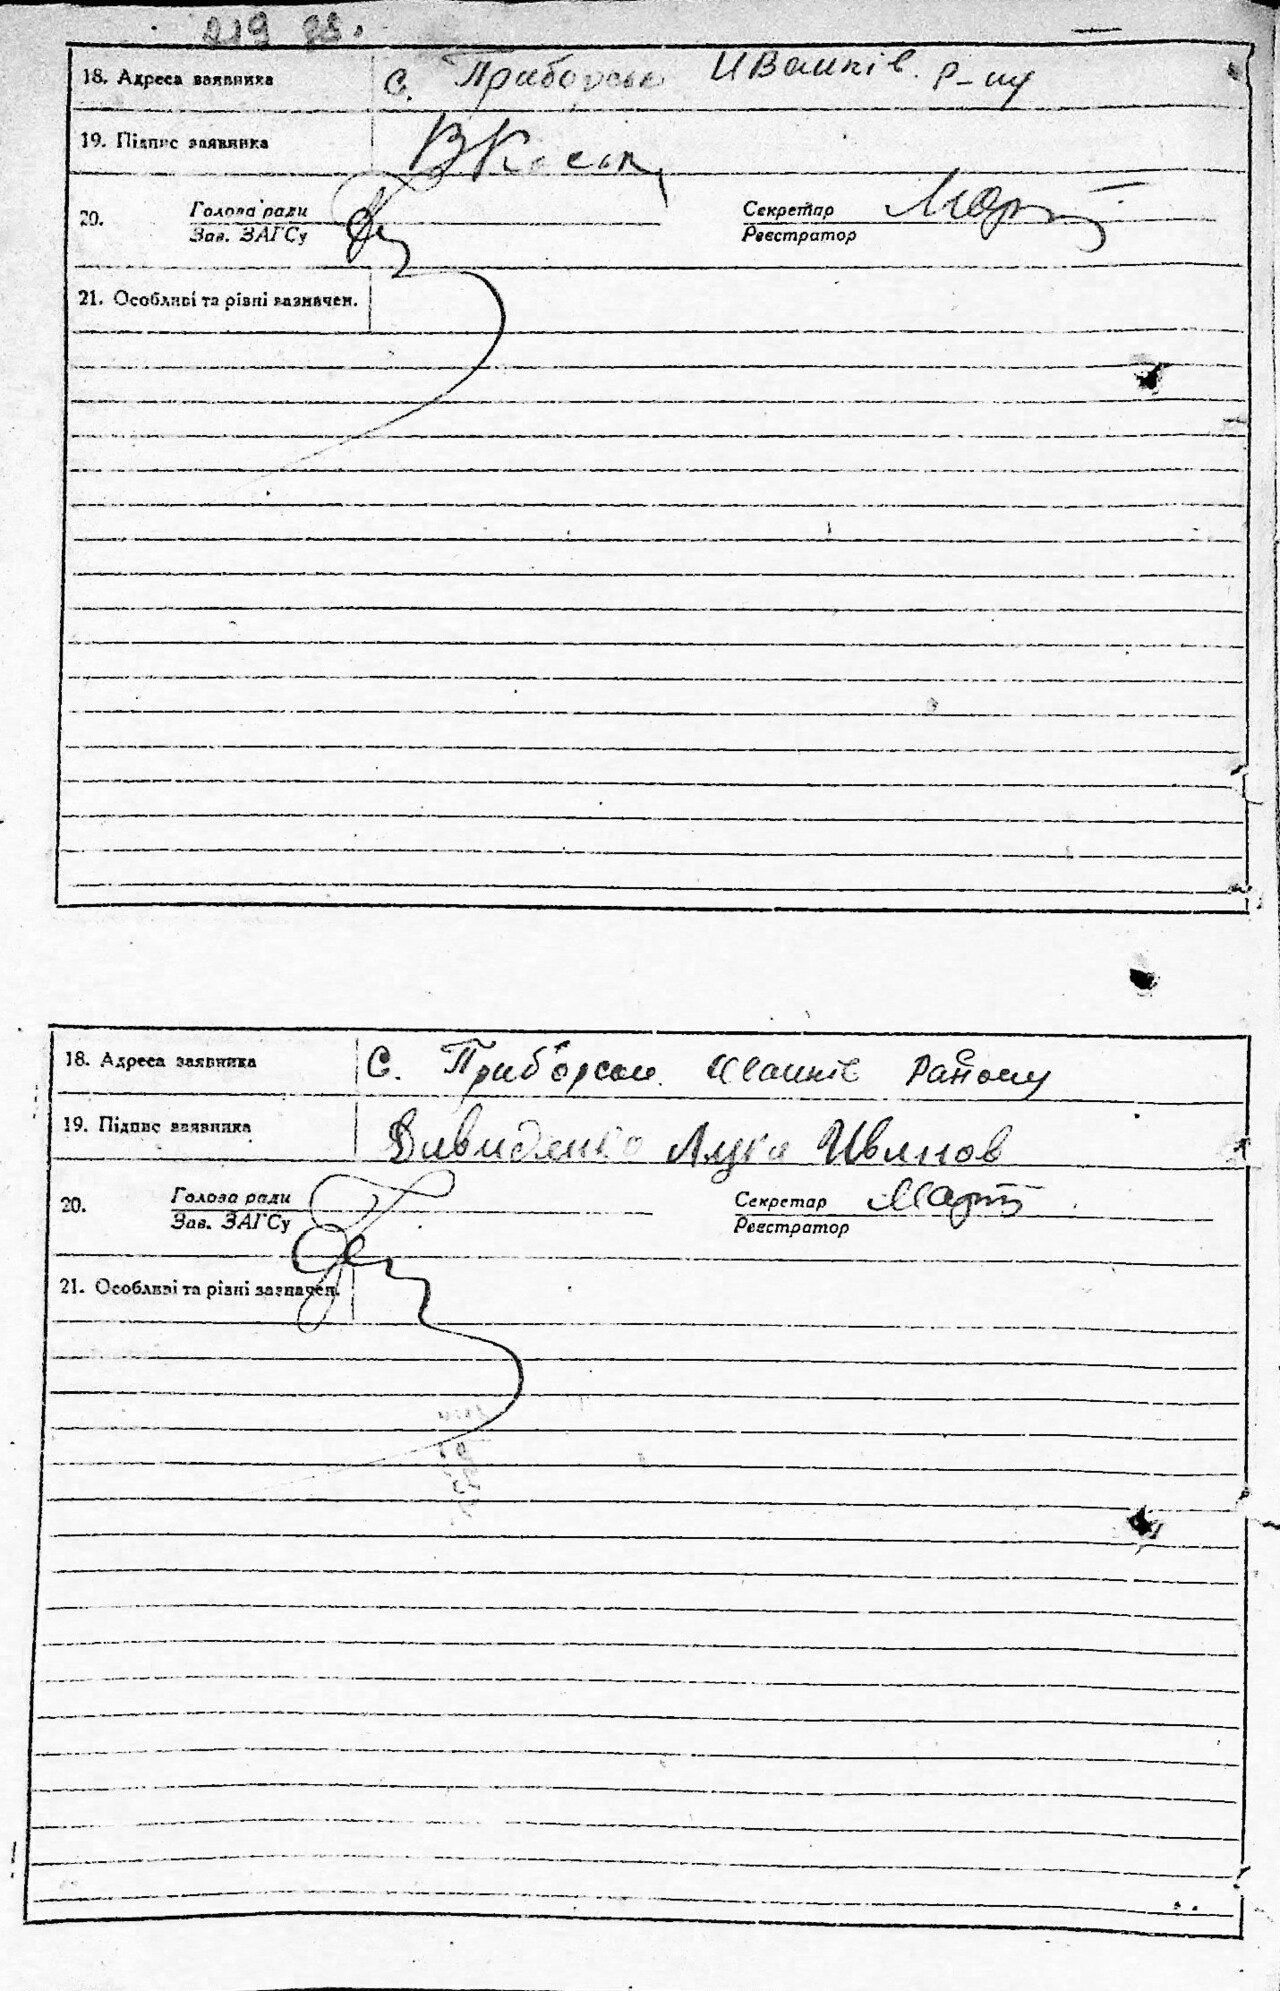 219 зв.
18. Адреса заявника С. Приборськ Иванків. р-ну
19. Підпис заявника
20. Голова ради Секретар
Зав. ЗАГСу Реєстратор
21. Особливі та різні зазначен.
18. Адреса заявника С. Приборськ Иванків Району
19. Підпис заявника Дивиденко Лука Иванов
20. Голова ради Секретар
Зав. ЗАГСу Реєстратор
21. Особливі та різні зазначен.